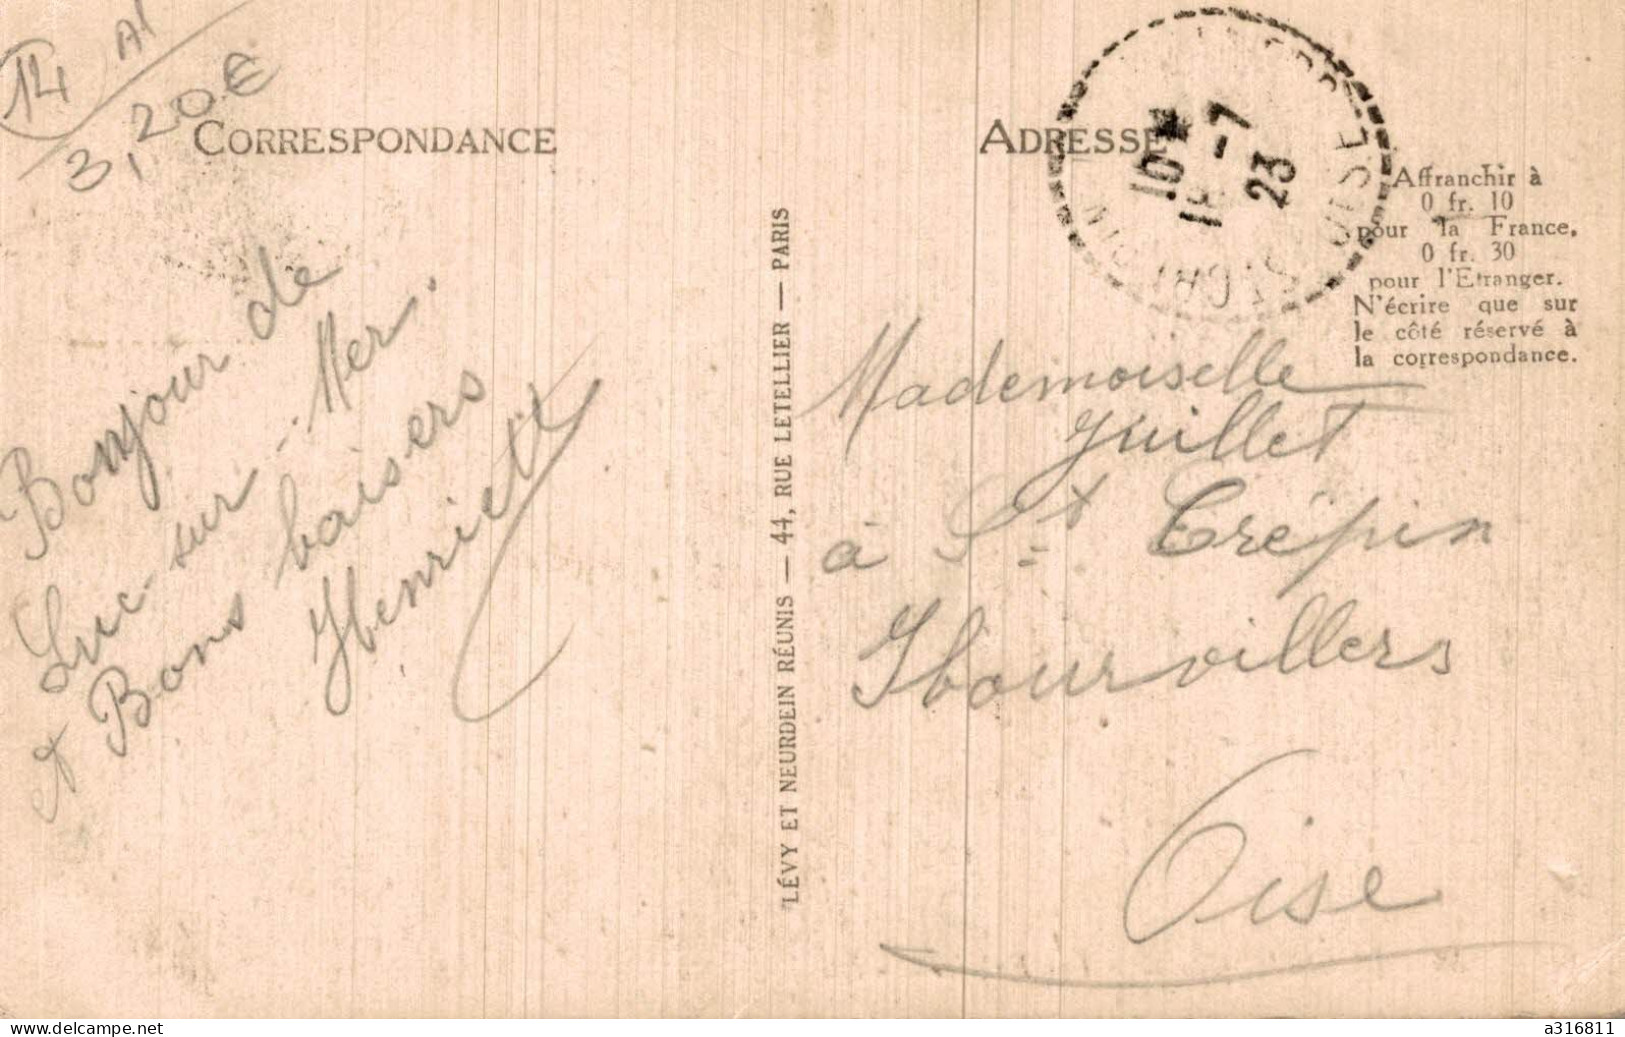 14
A1
3,20 €
CORRESPONDANCE
Bonjour de
Luc-sur-Mer.
et Bons baisers
Henriette
LÉVY ET NEURDEIN RÉUNIS — 44, RUE LETELLIER — PARIS
ADRESSE
10
-7
23
OISE
Affranchir à
0 fr. 10
pour la France,
0 fr. 30
pour l'Etranger.
N'écrire que sur
le côté réservé à
la correspondance.
Mademoiselle
Juillet
à St Crépin
Ibouvillers
Oise
www.delcampe.net
a316811